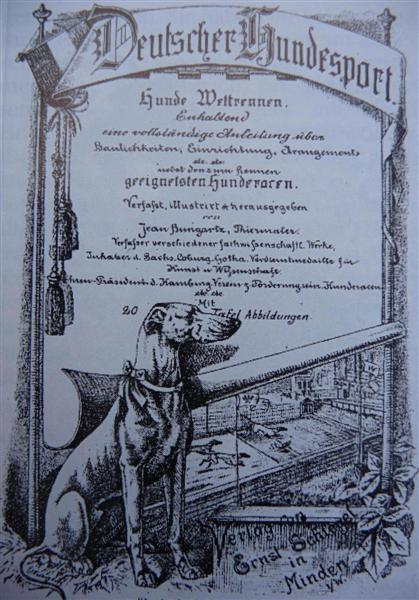 Deutscher Hundesport.
Hunde Wettrennen.
Enhaltend
eine vollständige Anleitung über
Baulichkeiten, Einrichtung, Arangements
etc. etc.
nebst den zum Rennen
geeignetsten Hunderacen.
Verfasst, illustrirt & herausgegeben
von
Jean Bungartz, Thiermaler.
Verfasser verschiedener fachwissenschaftl. Werke,
Inhaber d. Sachs. Coburg. Gotha. Verdienstmedaille für
Kunst u. Wissenschaft.
Ehren-Präsident d. Hamburg. Verein z. Förderung rein. Hunderacen
etc. etc.
Mit
20 Tafel Abbildungen.
Verlag von
Ernst
in
Minden